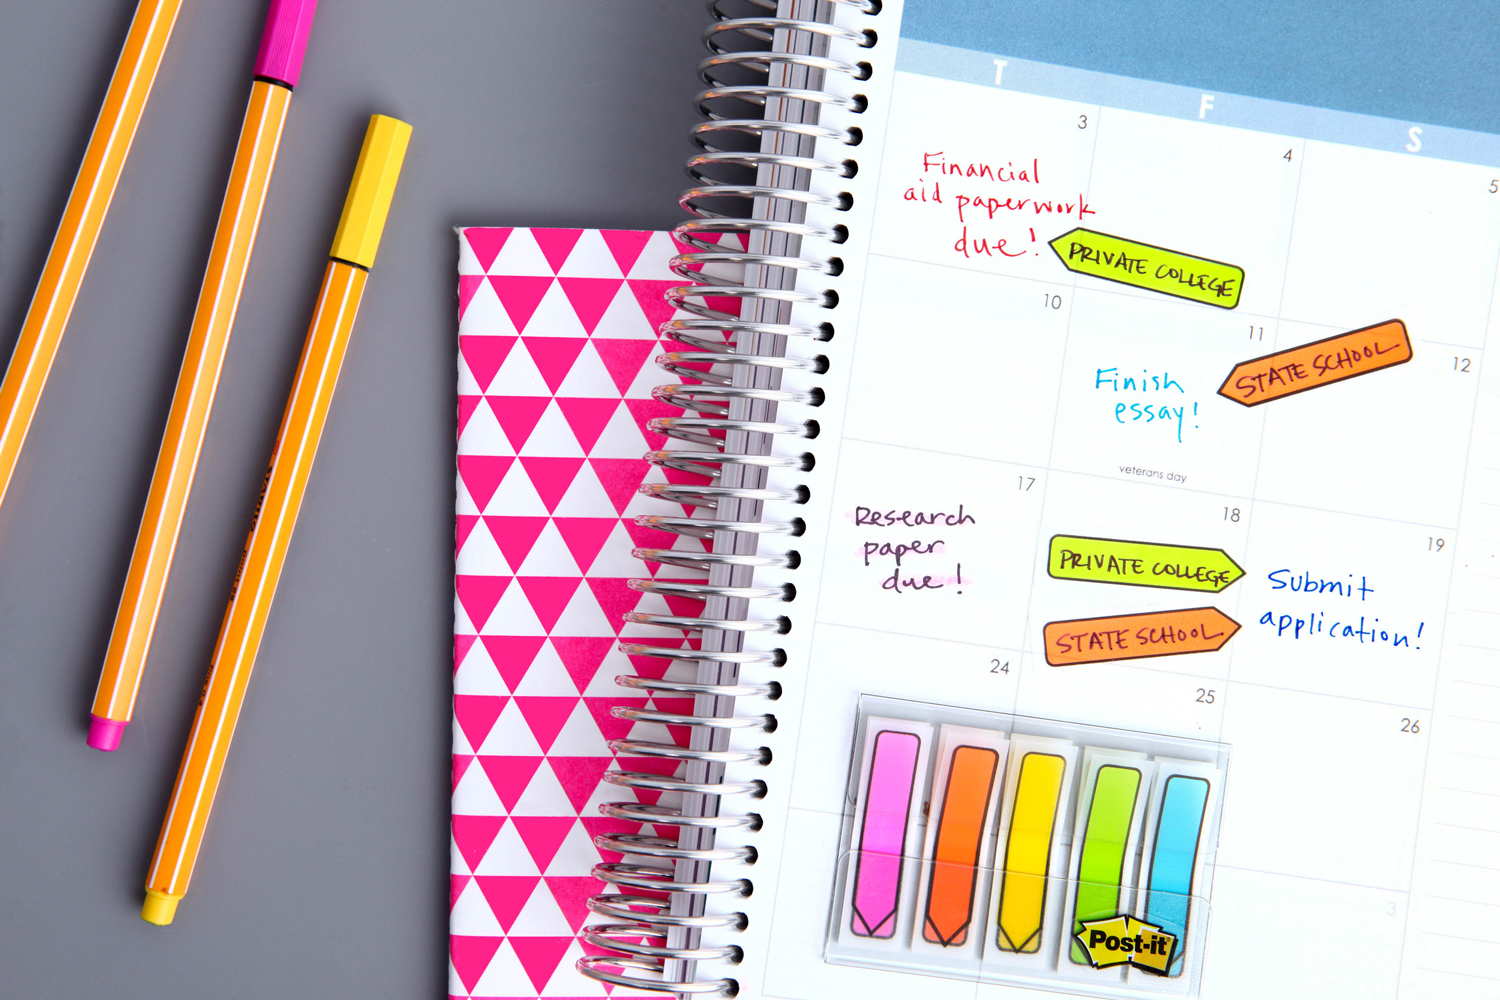 T
F
S
3
4
5
Financial
aid paperwork
due!
PRIVATE COLLEGE
10
11
12
Finish
essay!
STATE SCHOOL
veterans day
17
18
19
Research
paper
due!
PRIVATE COLLEGE
STATE SCHOOL
Submit
application!
24
25
26
3
Post-it